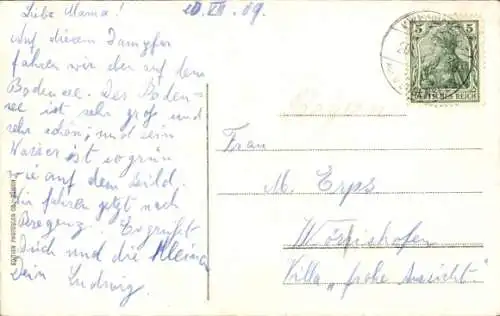 Liebe Mama! 20. VII. 09.
Auf diesem Dampfer
fahren wir eben auf dem
Bodensee. Der Boden-
see ist sehr groß und
sehr schön; und sein
Wasser ist so grün
wie auf dem Bild.
Wir fahren jetzt nach
Bregenz. Es grüßt
Dich und die Kleinen
Dein Ludwig.
5 5
DEUTSCHES REICH
Frau
M. Erps
Wörishofen
Villa „frohe Aussicht"